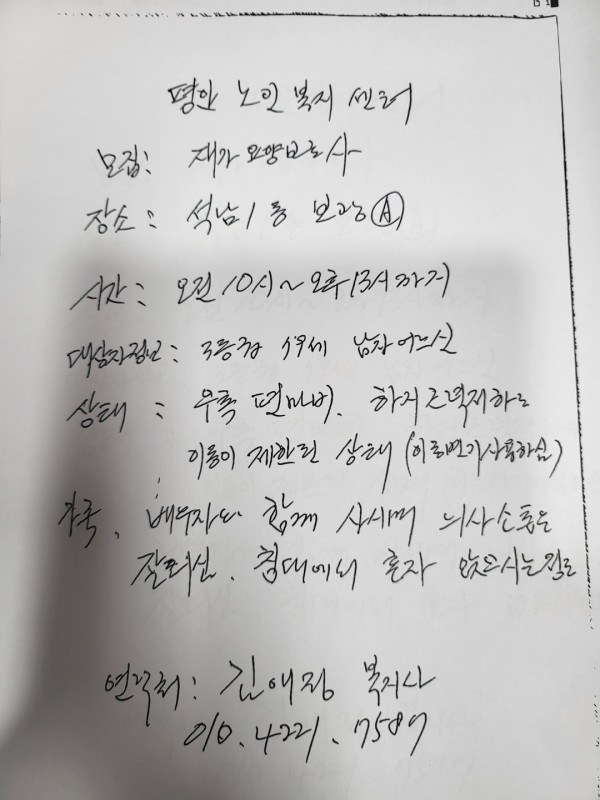 평안 노인 복지 센터
모집: 재가요양보호사
장소: 석남1동 보광Ⓐ
시간: 오전 10시~오후 13시까지
대상자정보: 3등급 79세 남자어르신
상태: 우측 편마비. 하지근력저하로
이동이 제한된 상태(이동변기사용하심)
가족. 배우자와 함께 사시며 의사소통은
잘되심. 침대에서 혼자 앉으시는정도
연락처: 김애정 복지사
010.4221.7589